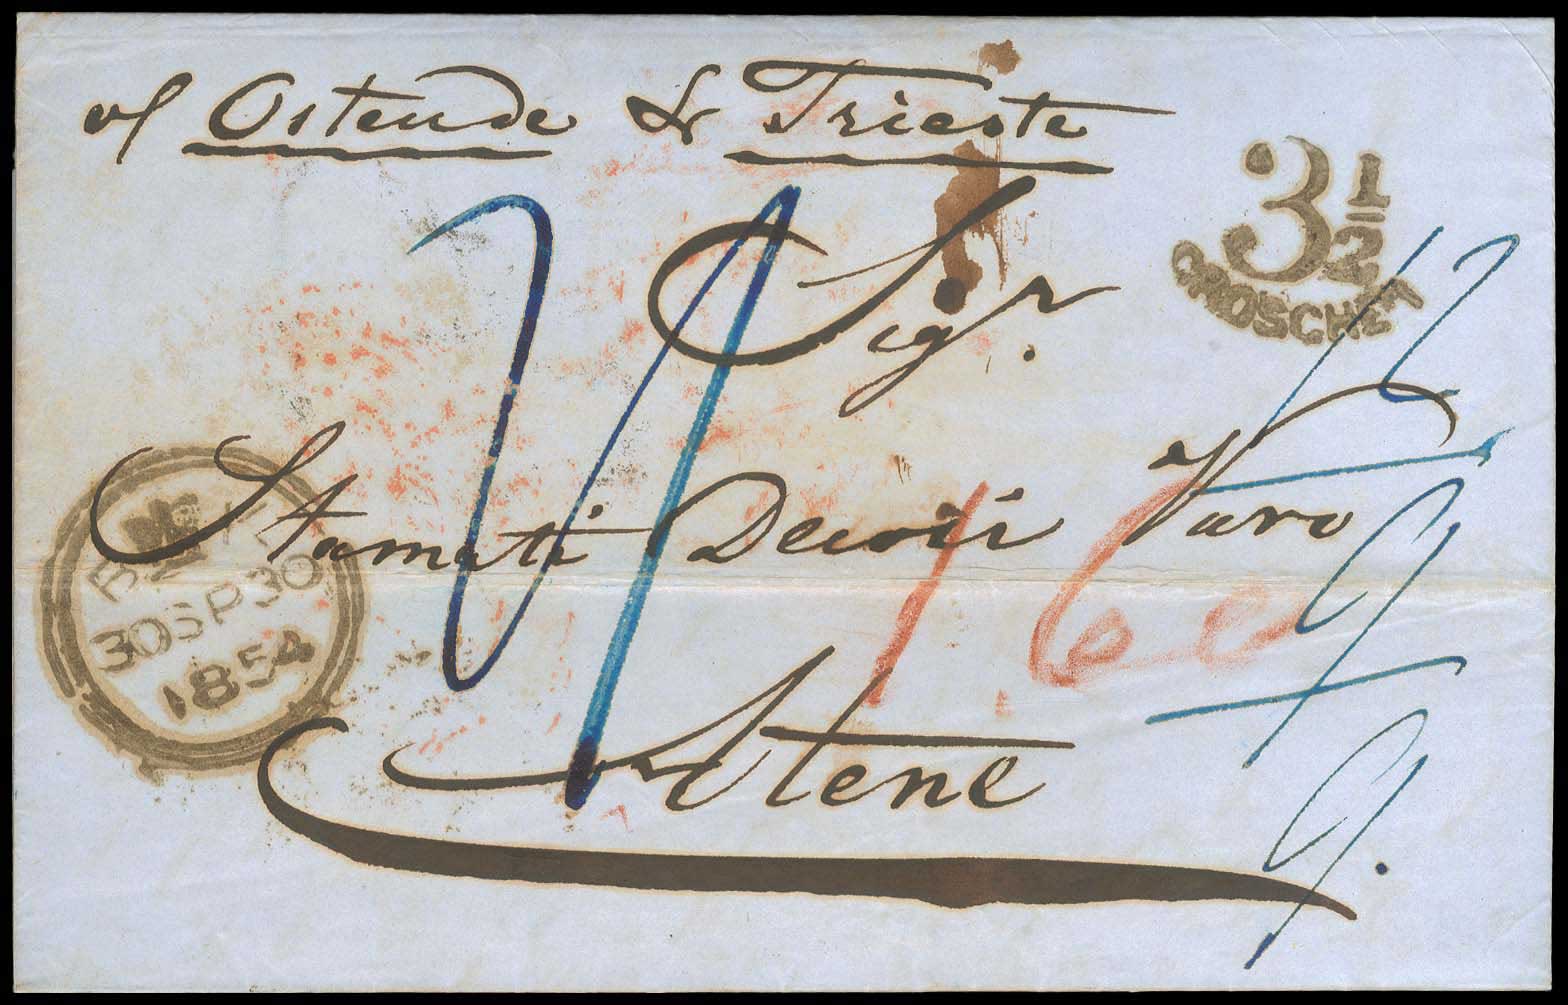 of Ostende & Trieste
3 1/2
GROSCHEN
Sigr.
Stamati Decosi Varo
30 SP 30
1854
1.6
Atene
12
9
9.